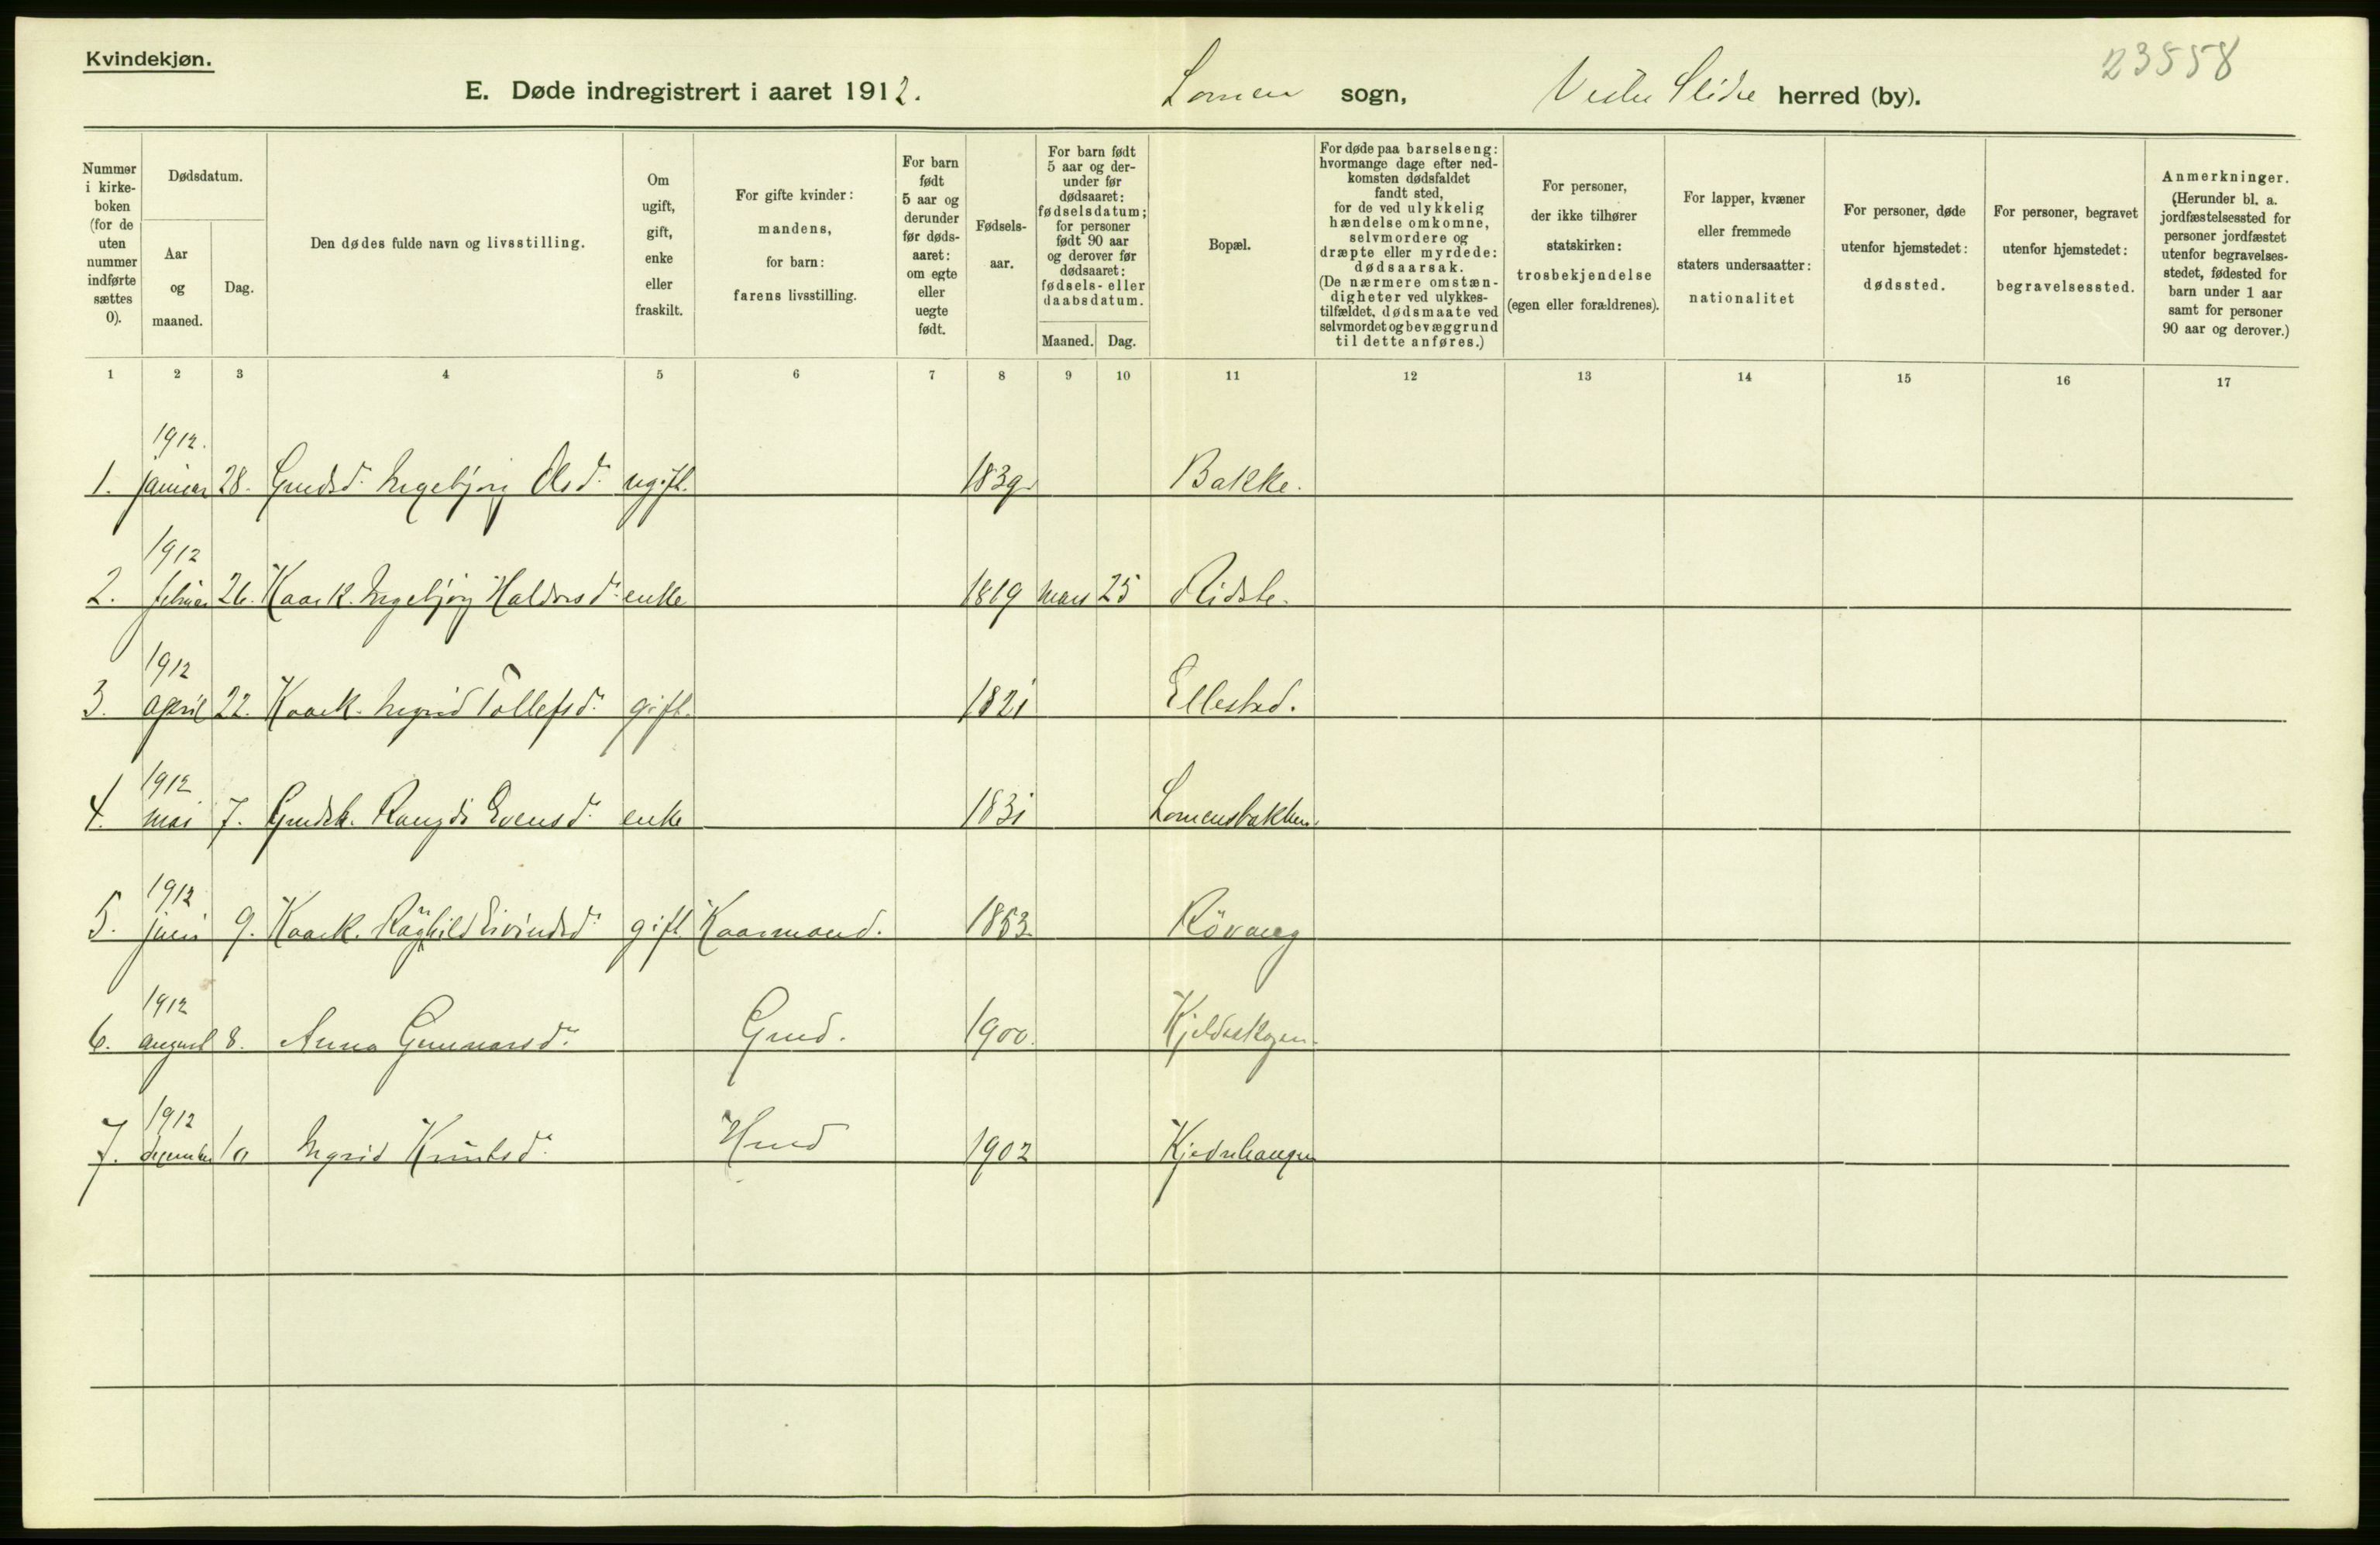 Kvindekjøn.
23558
E. Døde indregistrert i aaret 1912. Lomen sogn, Vestre Slidre herred (by).
Nummer i kirke- boken (for de uten nummer indførte sættes 0).
Dødsdatum.
Aar og maaned.
Dag.
Den dødes fulde navn og livsstilling.
Om ugift, gift, enke eller fraskilt.
For gifte kvinder: mandens, for barn: farens livsstilling.
For barn født 5 aar og derunder før døds- aaret: om egte eller uegte født.
Fødsels- aar.
For barn født 5 aar og der- under før dødsaaret: fødselsdatum; for personer født 90 aar og derover før dødsaaret: fødsels- eller daabsdatum.
Maaned. Dag.
Bopæl.
For døde paa barselseng: hvormange dage efter ned- komsten dødsfaldet fandt sted, for de ved ulykkelig hændelse omkomne, selvmordere og dræpte eller myrdede: dødsaarsak. (De nærmere omstæn- digheter ved ulykkes- tilfældet, dødsmaate ved selvmordet og bevæggrund til dette anføres.)
For personer, der ikke tilhører statskirken: trosbekjendelse (egen eller forældrenes).
For lapper, kvæner eller fremmede staters undersaatter: nationalitet
For personer, døde utenfor hjemstedet: dødssted.
For personer, begravet utenfor hjemstedet: begravelsessted.
Anmerkninger. (Herunder bl. a. jordfæstelsessted for personer jordfæstet utenfor begravelses- stedet, fødested for barn under 1 aar samt for personer 90 aar og derover.)
1 2 3 4 5 6 7 8 9 10 11 12 13 14 15 16 17
1912.
1. januar 28. Gmdsd. Ingebjørg Olsd. ugift. 1839. Bakke.
1912
2. februar 26. Kaark. Ingebjørg Haldorsd. enke 1819 mars 25 Ridste.
1912
3. april 22. Kaark. Ingrid Tollefsd. gift. 1821 Ellestad.
1912
4. mai 7. Gmdsk. Rangdi Evensd. enke 1831 Lomensbakken.
1912
5. juni 9. Kaark. Ragnhild Eivindsd. gift Kaarmand. 1853. Rövang
1912
6. august 8. Anna Gunnarsd. Gmd. 1900. Kjeldeskogen.
1912
7. december 10 Ingrid Knutsd. Hmd 1902